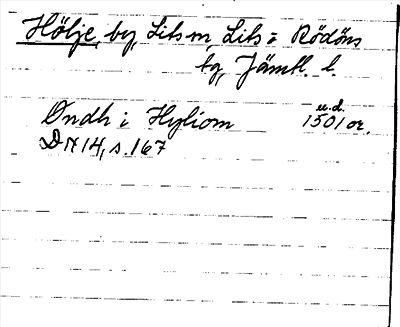 Hölje, by, Lits sn, Lits= Rödöns
tg, Jämtl. l.
Ondh i Hyliom
u.d.
1501 or.
DN 14, s. 167